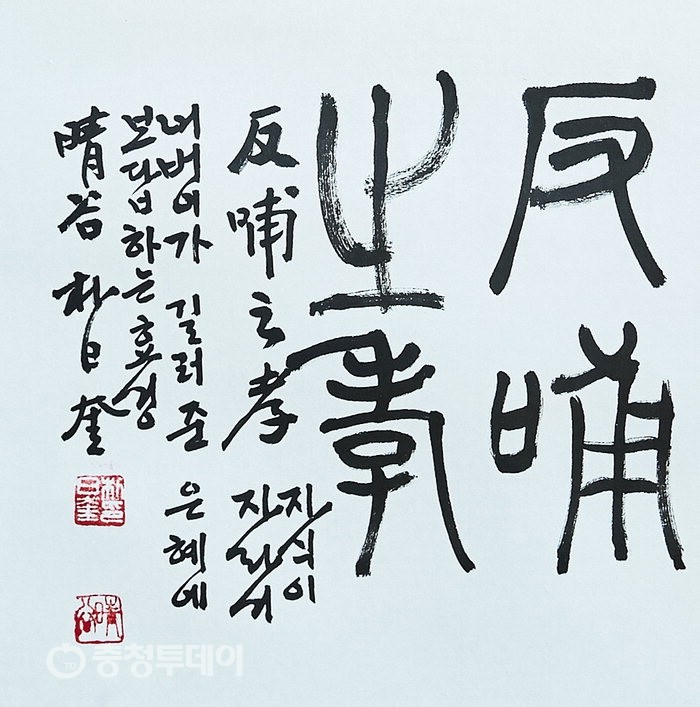 反哺
之孝
反哺之孝 자식이
자라서
어버이가 길러준 은혜에
보답하는 효성
晴谷 朴日奎
충청투데이